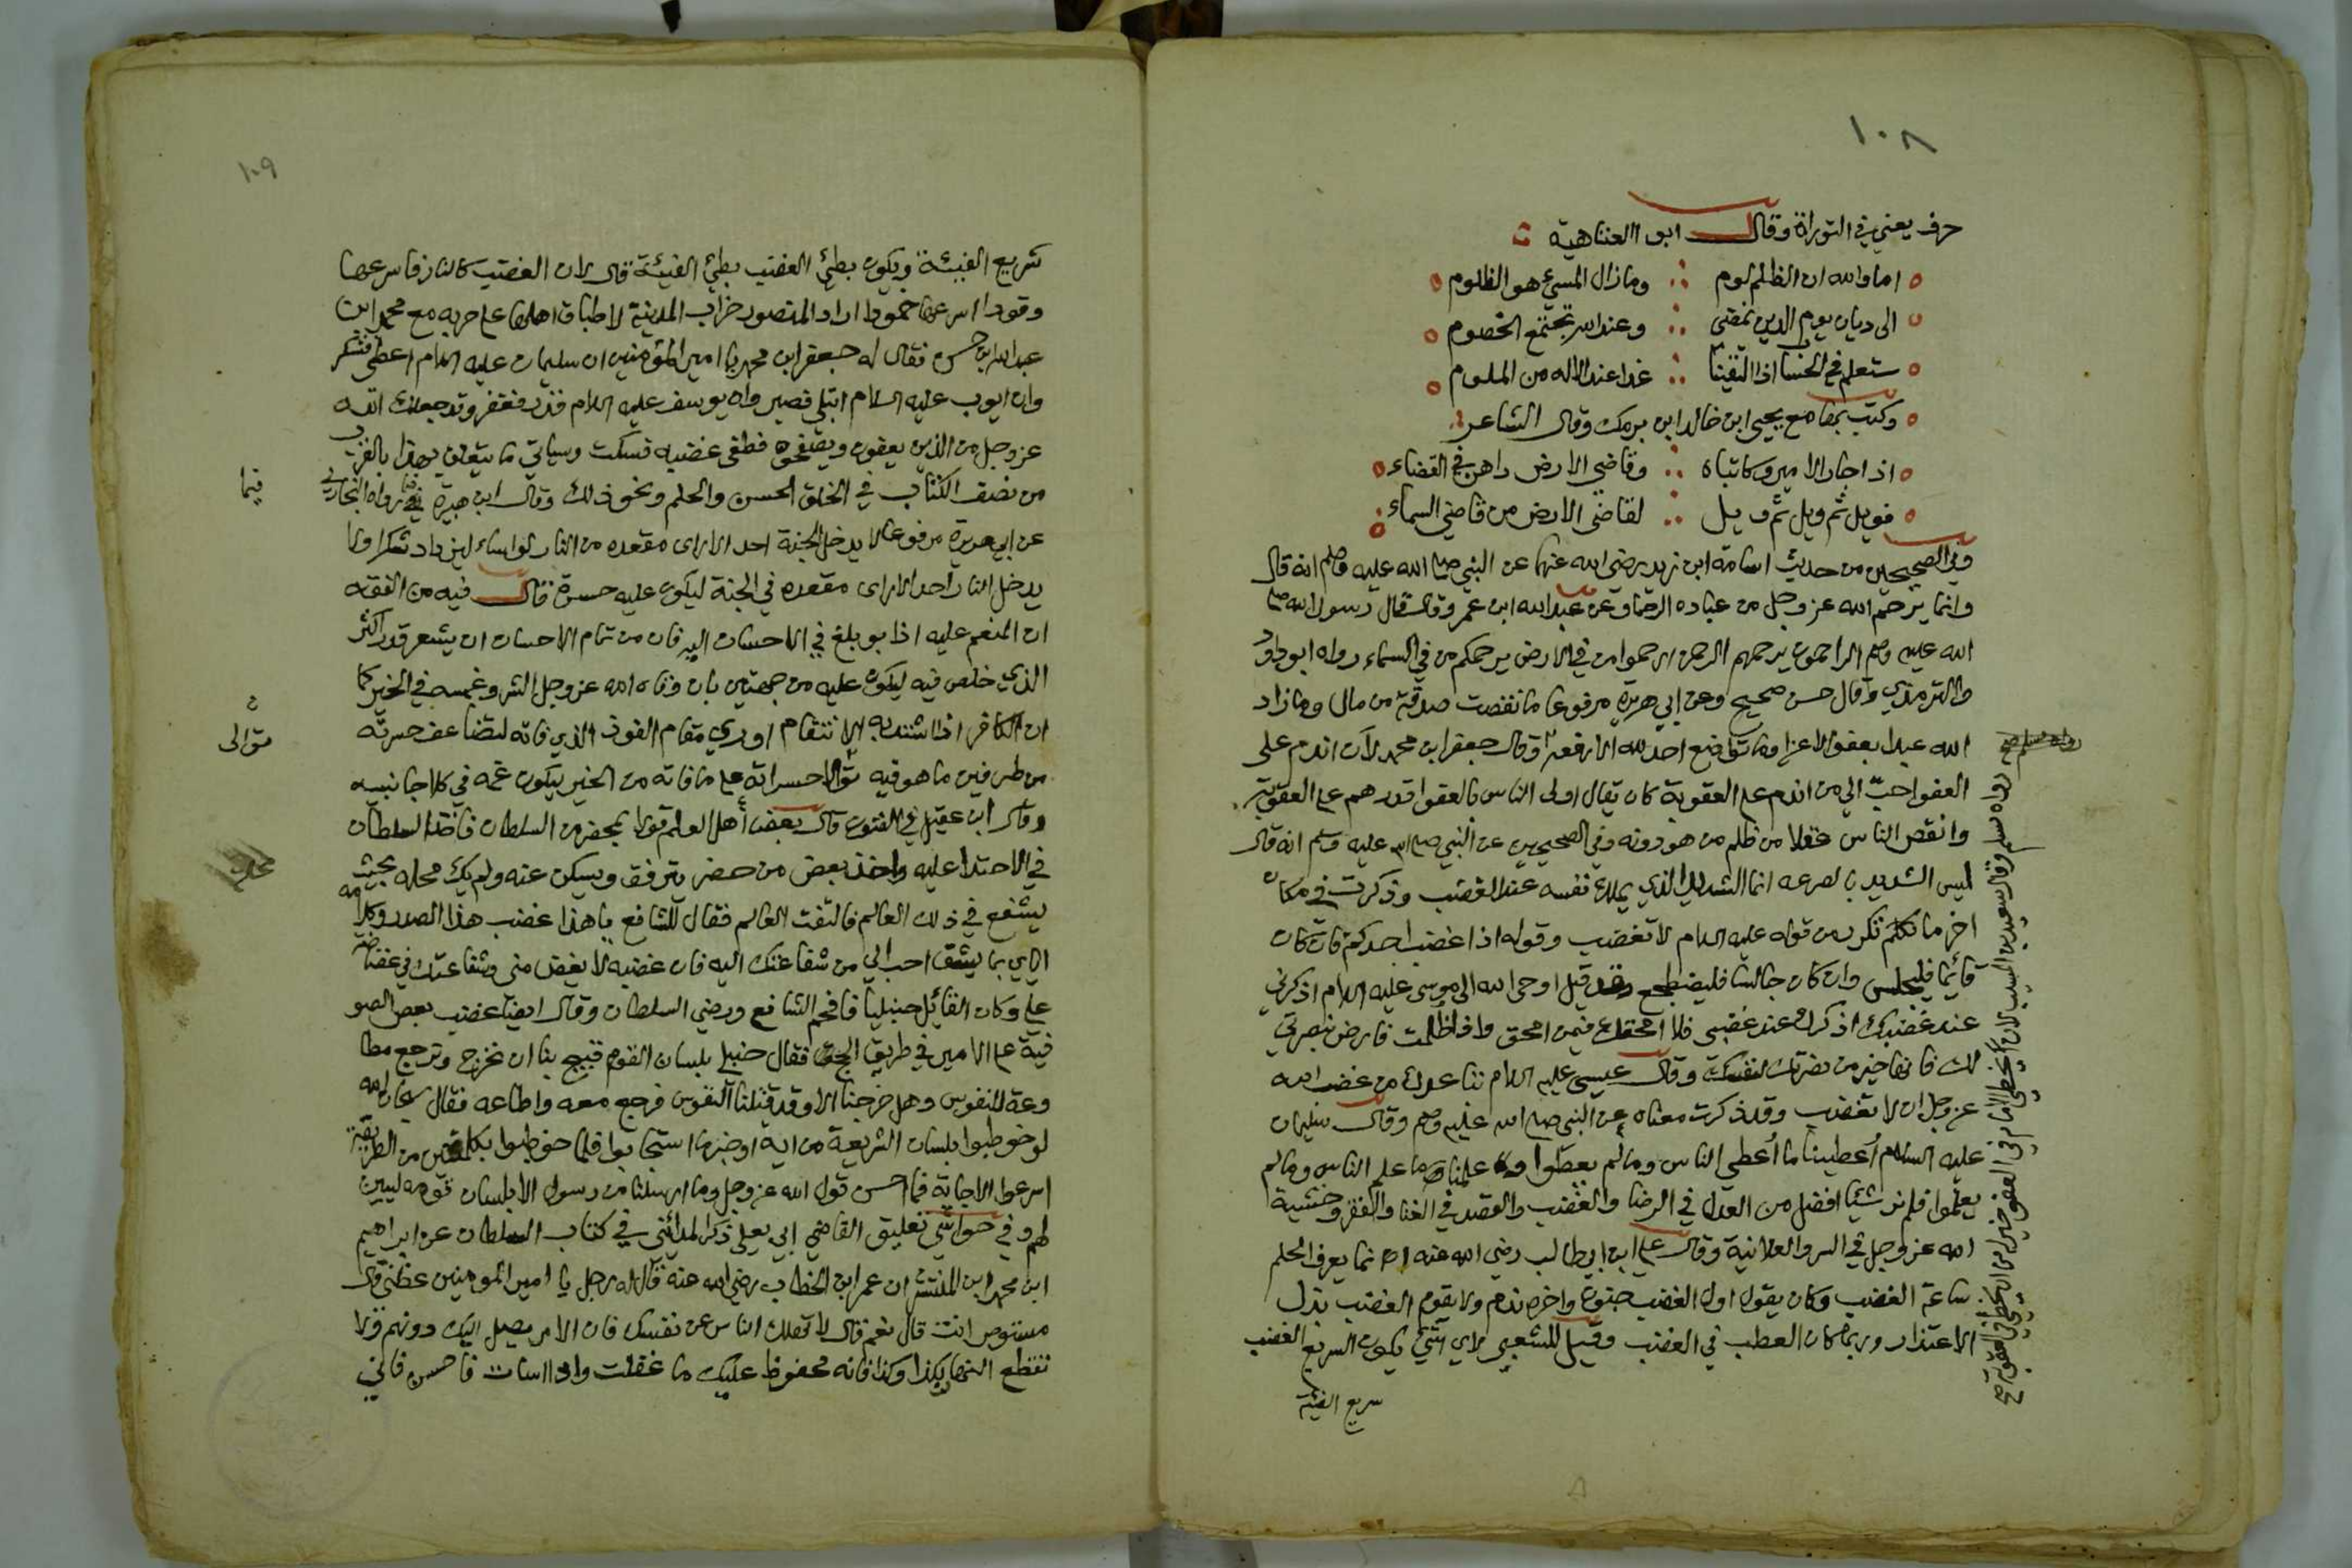 ١٠٨
حرف يعني في التوراة وقال ابو العتاهية
اما والله ان الظلم لوم وما زال المسيء هو الظلوم
الى ديان يوم الدين نمضي وعند الله تجتمع الخصوم
ستعلم في الحساب اذا التقينا غدا عند الاله من الملوم
وكتب بها مع يحيى ابن خالد ابن برمك وقال الشاعر
اذا جار الامير وكاتباه وقاضي الارض داهن في القضاء
فويل ثم ويل ثم ويل لقاضي الارض من قاضي السماء
وفي الصحيحين من حديث اسامة ابن زيد رضي الله عنهما عن النبي صلى الله عليه وسلم انه قال
وانما يرحم الله عز وجل من عباده الرحما وعن عبد الله ابن عمر وقال قال رسول الله صلى
الله عليه وسلم الراحمون يرحمهم الرحمن ارحموا من في الارض يرحمكم من في السماء رواه ابو داود
والترمذي وقال حسن صحيح وعن ابي هريرة مرفوعا ما نقصت صدقة من مال وما زاد
الله عبدا بعفو الا عزا وما تواضع احد لله الا رفعه وقال جعفر ابن محمد لان اندم على
العفو احبّ الي من اندم على العقوبة كان يقال اولى الناس بالعفو اقدرهم على العقوبة
وانقص الناس عقلا من ظلم من هو دونه وفي الصحيحين عن النبي صلى الله عليه وسلم انه قال
ليس الشديد بالصرعه انما الشديد الذي يملك نفسه عند الغضب وذكرت في مكان
اخر ما تكلم تكرر من قوله عليه السلام لا تغضب وقوله اذا غضب احدكم فان كان
قائما فليجلس وان كان جالسا فليضطجع وقد قيل اوحى الله الى موسى عليه السلام اذكرني
عند غضبك اذكرك عند غضبي فلا امحقك فيمن امحق واذا ظلمت فارض بنصرتي
لك فانها خير من نصرتك لنفسك وقال عيسى عليه السلام تباعدك من غضب الله
عز وجل ان لا تغضب وقد ذكرت معناه عن النبي صلى الله عليه وسلم وقال سليمان
عليه السلام أعطينا ما أعطي الناس وما لم يعطوا وعلمنا ما علم الناس وما لم
يعلموا فلم نر شيئا افضل من العدل في الرضا والغضب والقصد في الغنا والفقر وخشية
الله عز وجل في السر والعلانية وقال علي ابن ابي طالب رضي الله عنه انما يعرف الحلم
ساعة الغضب وكان يقول اول الغضب جنون واخره ندم ولا يقوم الغضب بذل
الاعتذار وربما كان العطب في الغضب وقيل للشعبي لاي شيء يكون السريع الغضب
سريع الفيئة
رواه مسلم وقال سعيد بن المسيب لان يخطي الامام في العفو خير من ان يخطي في العقوبة صح
١٠٩
سريع الفيئة ويكون بطئ الغضب بطئ الفيئة قال لان الغضب كالنار فاسرعها
وقودا اسرعها خمودا اراد المنصور خراب المدينة لاطباق اهلها على حربه مع محمد ابن
عبد الله ابن حسن فقال له جعفر ابن محمد يا امير المؤمنين ان سليمان عليه السلام اعطي فشكر
وان ايوب عليه السلام ابتلي فصبر وان يوسف عليه السلام قدر فغفر وقد جعلك الله
عز وجل من الذين يعفون ويصفحون فطفى غضبه فسكت وسياتي ما يتعلق بهذا بالقرب
من نصف الكتاب في الخلق الحسن والحلم ونحو ذلك وقال ابن هبيرة فيما رواه البخاري
فيما
عن ابي هريرة مرفوعا لا يدخل الجنة احد الا اراى مقعده من النار لو اساء ليزداد شكرا ولا
يدخل النار احد الا اراى مقعده في الجنة ليكون عليه حسرة قال فيه من الفقه
ان المنعم عليه اذا بولغ في الاحسان اليه فان من تمام الاحسان ان يشعر قدر اكثر
الذي خلص فيه ليكون عليه من جهتين بان وقاه الله عز وجل الشر وغمسه في الخير كما
ان الكافر اذا اشتد به الانتقام اوري مقام الفوز الذي فاته لتضاعف حسرته
توالى
من طرفين ما هو فيه توالا حسراته على ما فاته من الخير ليكون غمه في كلا جانبيه
وقال ابن عقيل في الفنون قال بعض أهل العلم قولا بمحضر من السلطان فاخذ السلطان
في الاحتداد عليه واخذ بعض من حضر يترفق ويسكن عنه ولم يك محله بحيث
محله
يشفع في ذلك العالم فالتفت العالم فقال للشافع يا هذا غضب هذا الصدر وكلامه
اياي بما يشق احب الي من شفاعتك اليه فان غضبه لا يغض مني وشفاعتك في غضاضة
علي وكان القائل حنبليا فافحم الشافع ورضي السلطان وقال ايضا غضب بعض الصو
فية على الامير في طريق الحج فقال حنبلي بلسان القوم قبيح بنا ان نخرج ونرجع مطا
وعة للنفوس وهل خرجنا الا وقد قتلنا النفوس فرجع معه واطاعه فقال سبحان الله
لو خوطبوا بلسان الشريعة من اية او خبر ما استجابوا فلما خوطبوا بكلمتين من الطريقة
اسرعوا الاجابة فما احسن قول الله عز وجل وما ارسلنا من رسول الا بلسان قومه ليبين
لهم وفي حواشي تعليق القاضي ابي يعلى ذكر المدائني في كتاب السلطان عن ابراهيم
ابن محمد ابن المنتشر ان عمر ابن الخطاب رضي الله عنه قال له رجل يا امير المومنين عظني قال
مستوص انت قال نعم قال لا تهلك الناس عن نفسك فان الامر يصل اليك دونهم ولا
تقطع النهار بكذا وكذا فانه محفوظ عليك ما غفلت واذا اسات فاحسن فاني